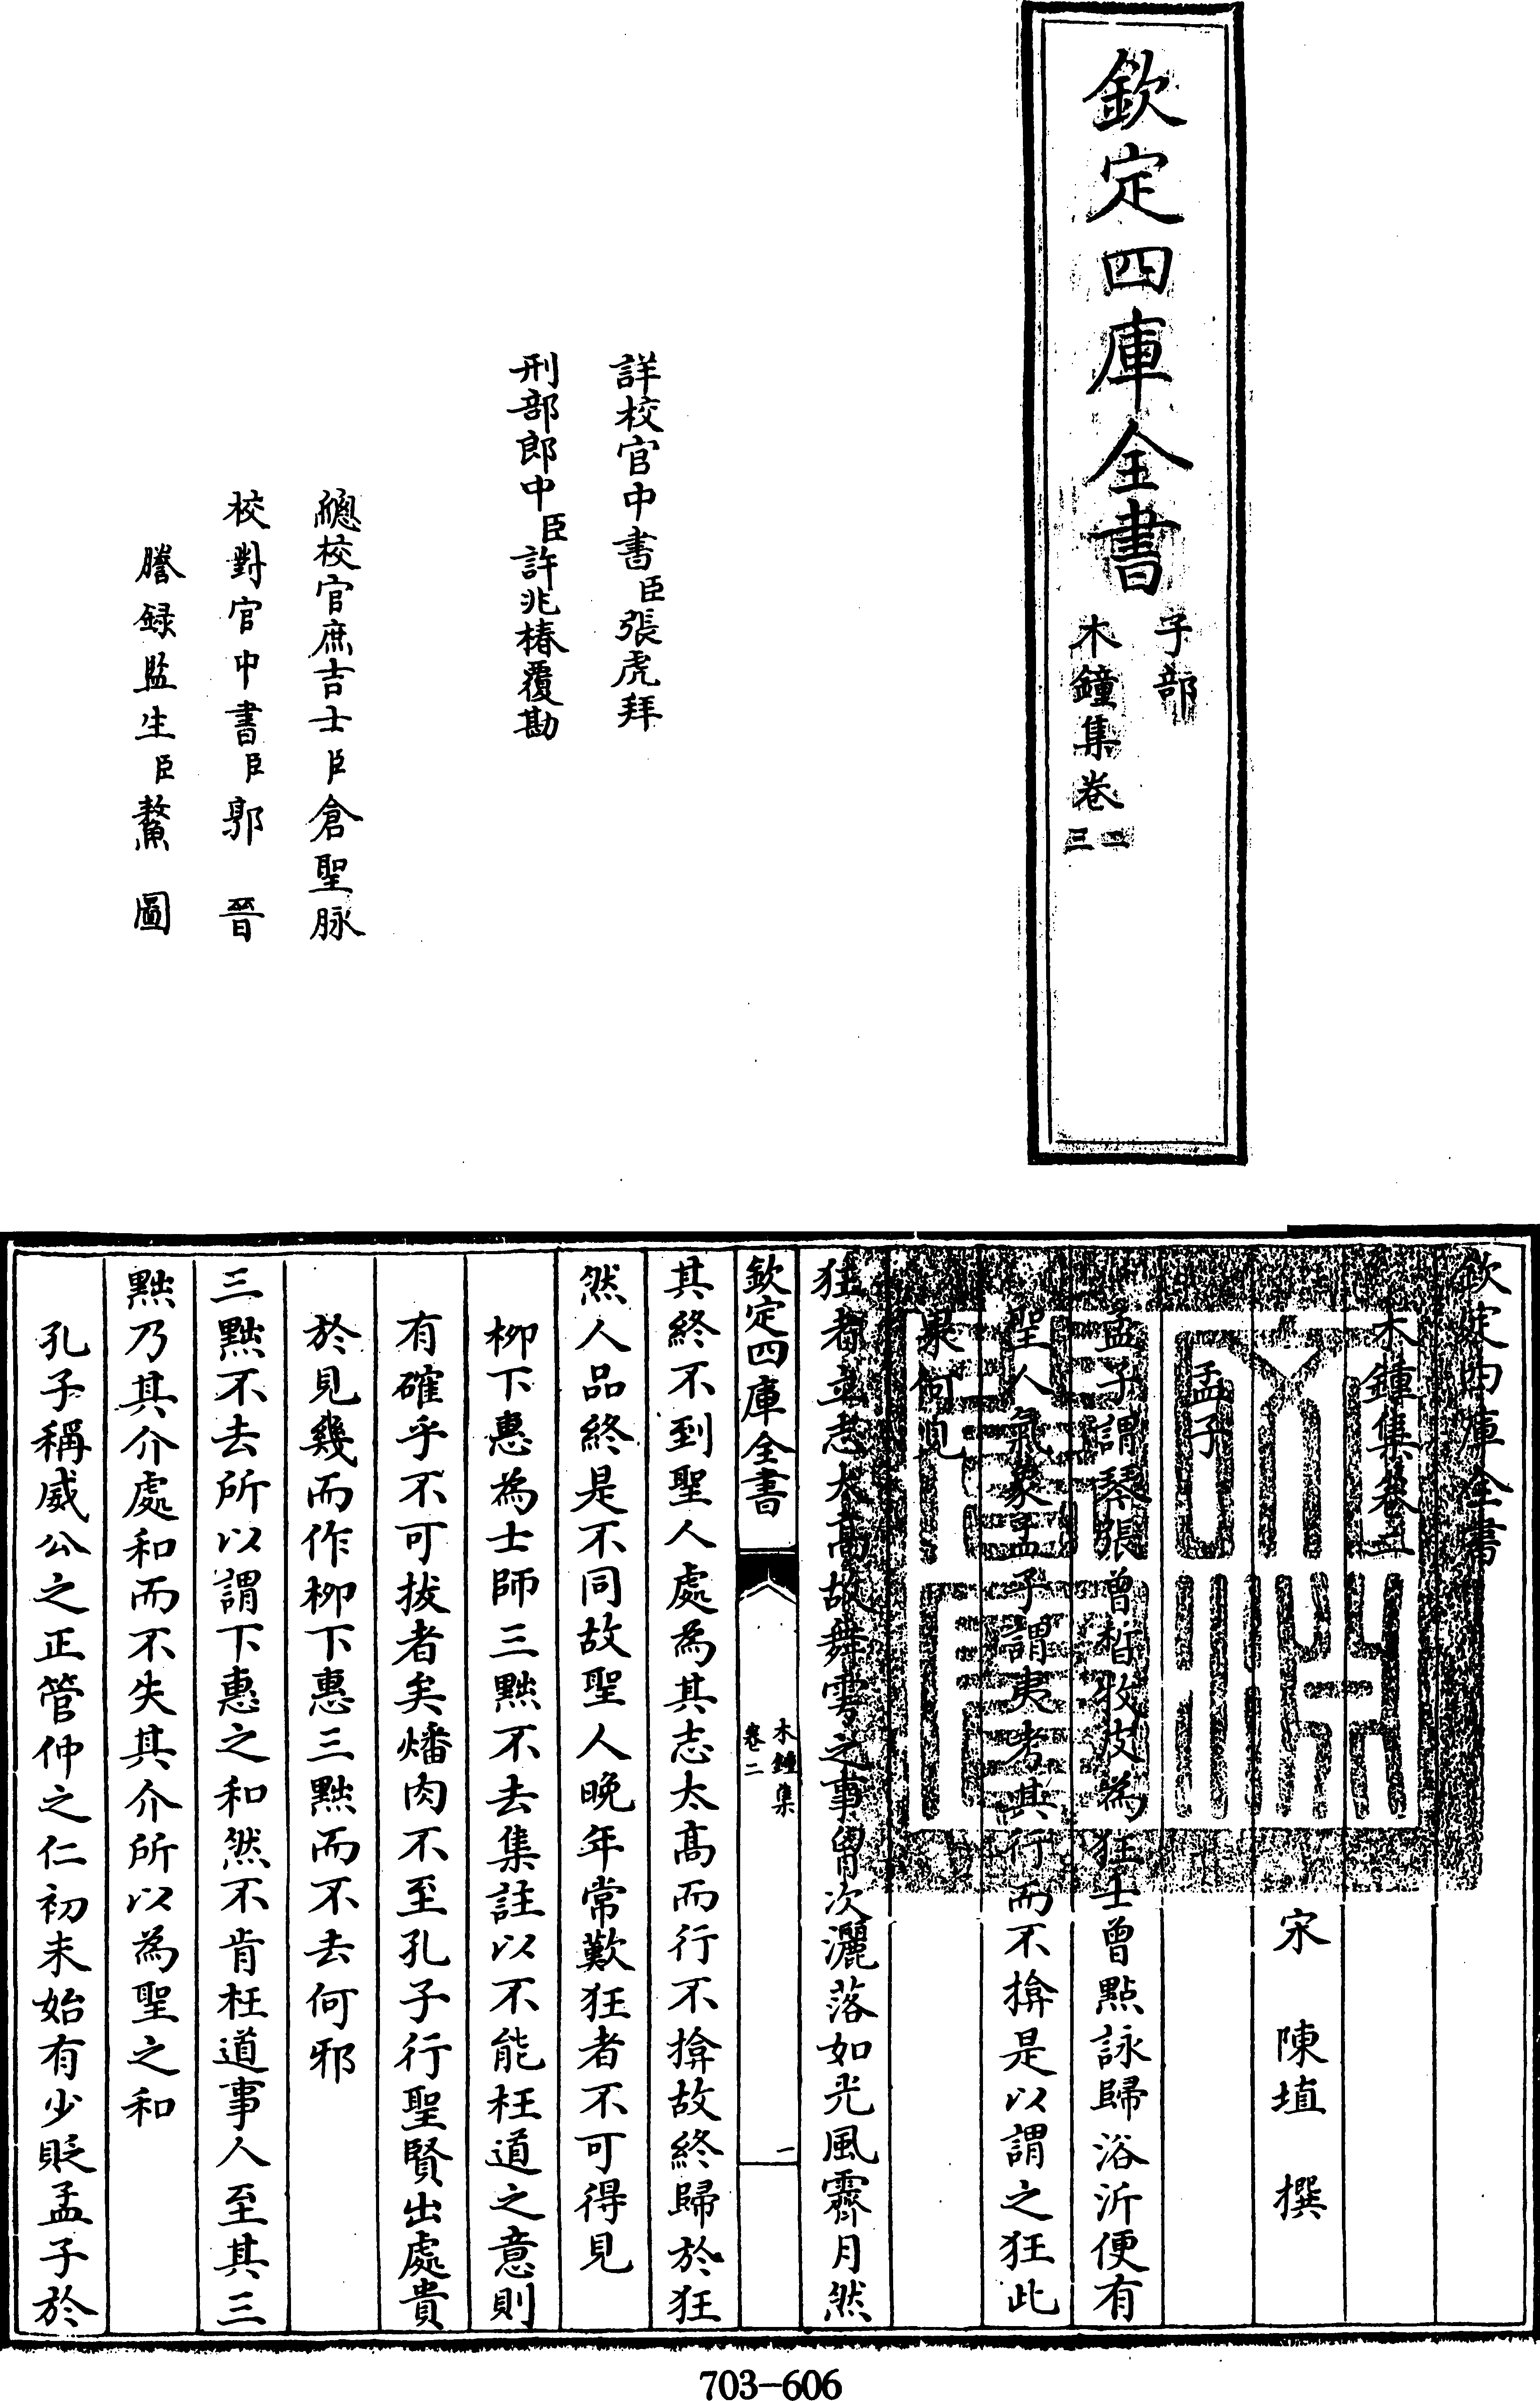 欽定四庫全書
子部
木鐘集卷二
三
詳校官中書臣張虎拜
刑部郎中臣許兆椿覆勘
總校官庶吉士臣倉聖脉
校對官中書臣郭晉
謄録監生臣鰲圖
欽定四庫全書
木鍾集卷二
宋 陳埴 撰
孟子
孟子謂琴張曾晳牧皮為狂士曾點詠歸浴沂便有
聖人氣象孟子謂夷考其行而不揜是以謂之狂此
果何見
狂者立志太高故舞雩之事胷次灑落如光風霽月然
欽定四庫全書
木鍾集
卷二
一
其終不到聖人處為其志太高而行不揜故終歸於狂
然人品終是不同故聖人晚年常歎狂者不可得見
柳下惠為士師三黜不去集註以不能枉道之意則
有確乎不可拔者矣燔肉不至孔子行聖賢出處貴
於見幾而作柳下惠三黜而不去何邪
三黜不去所以謂下惠之和然不肯枉道事人至其三
黜乃其介處和而不失其介所以為聖之和
孔子稱威公之正管仲之仁初未始有少貶孟子於
703-606